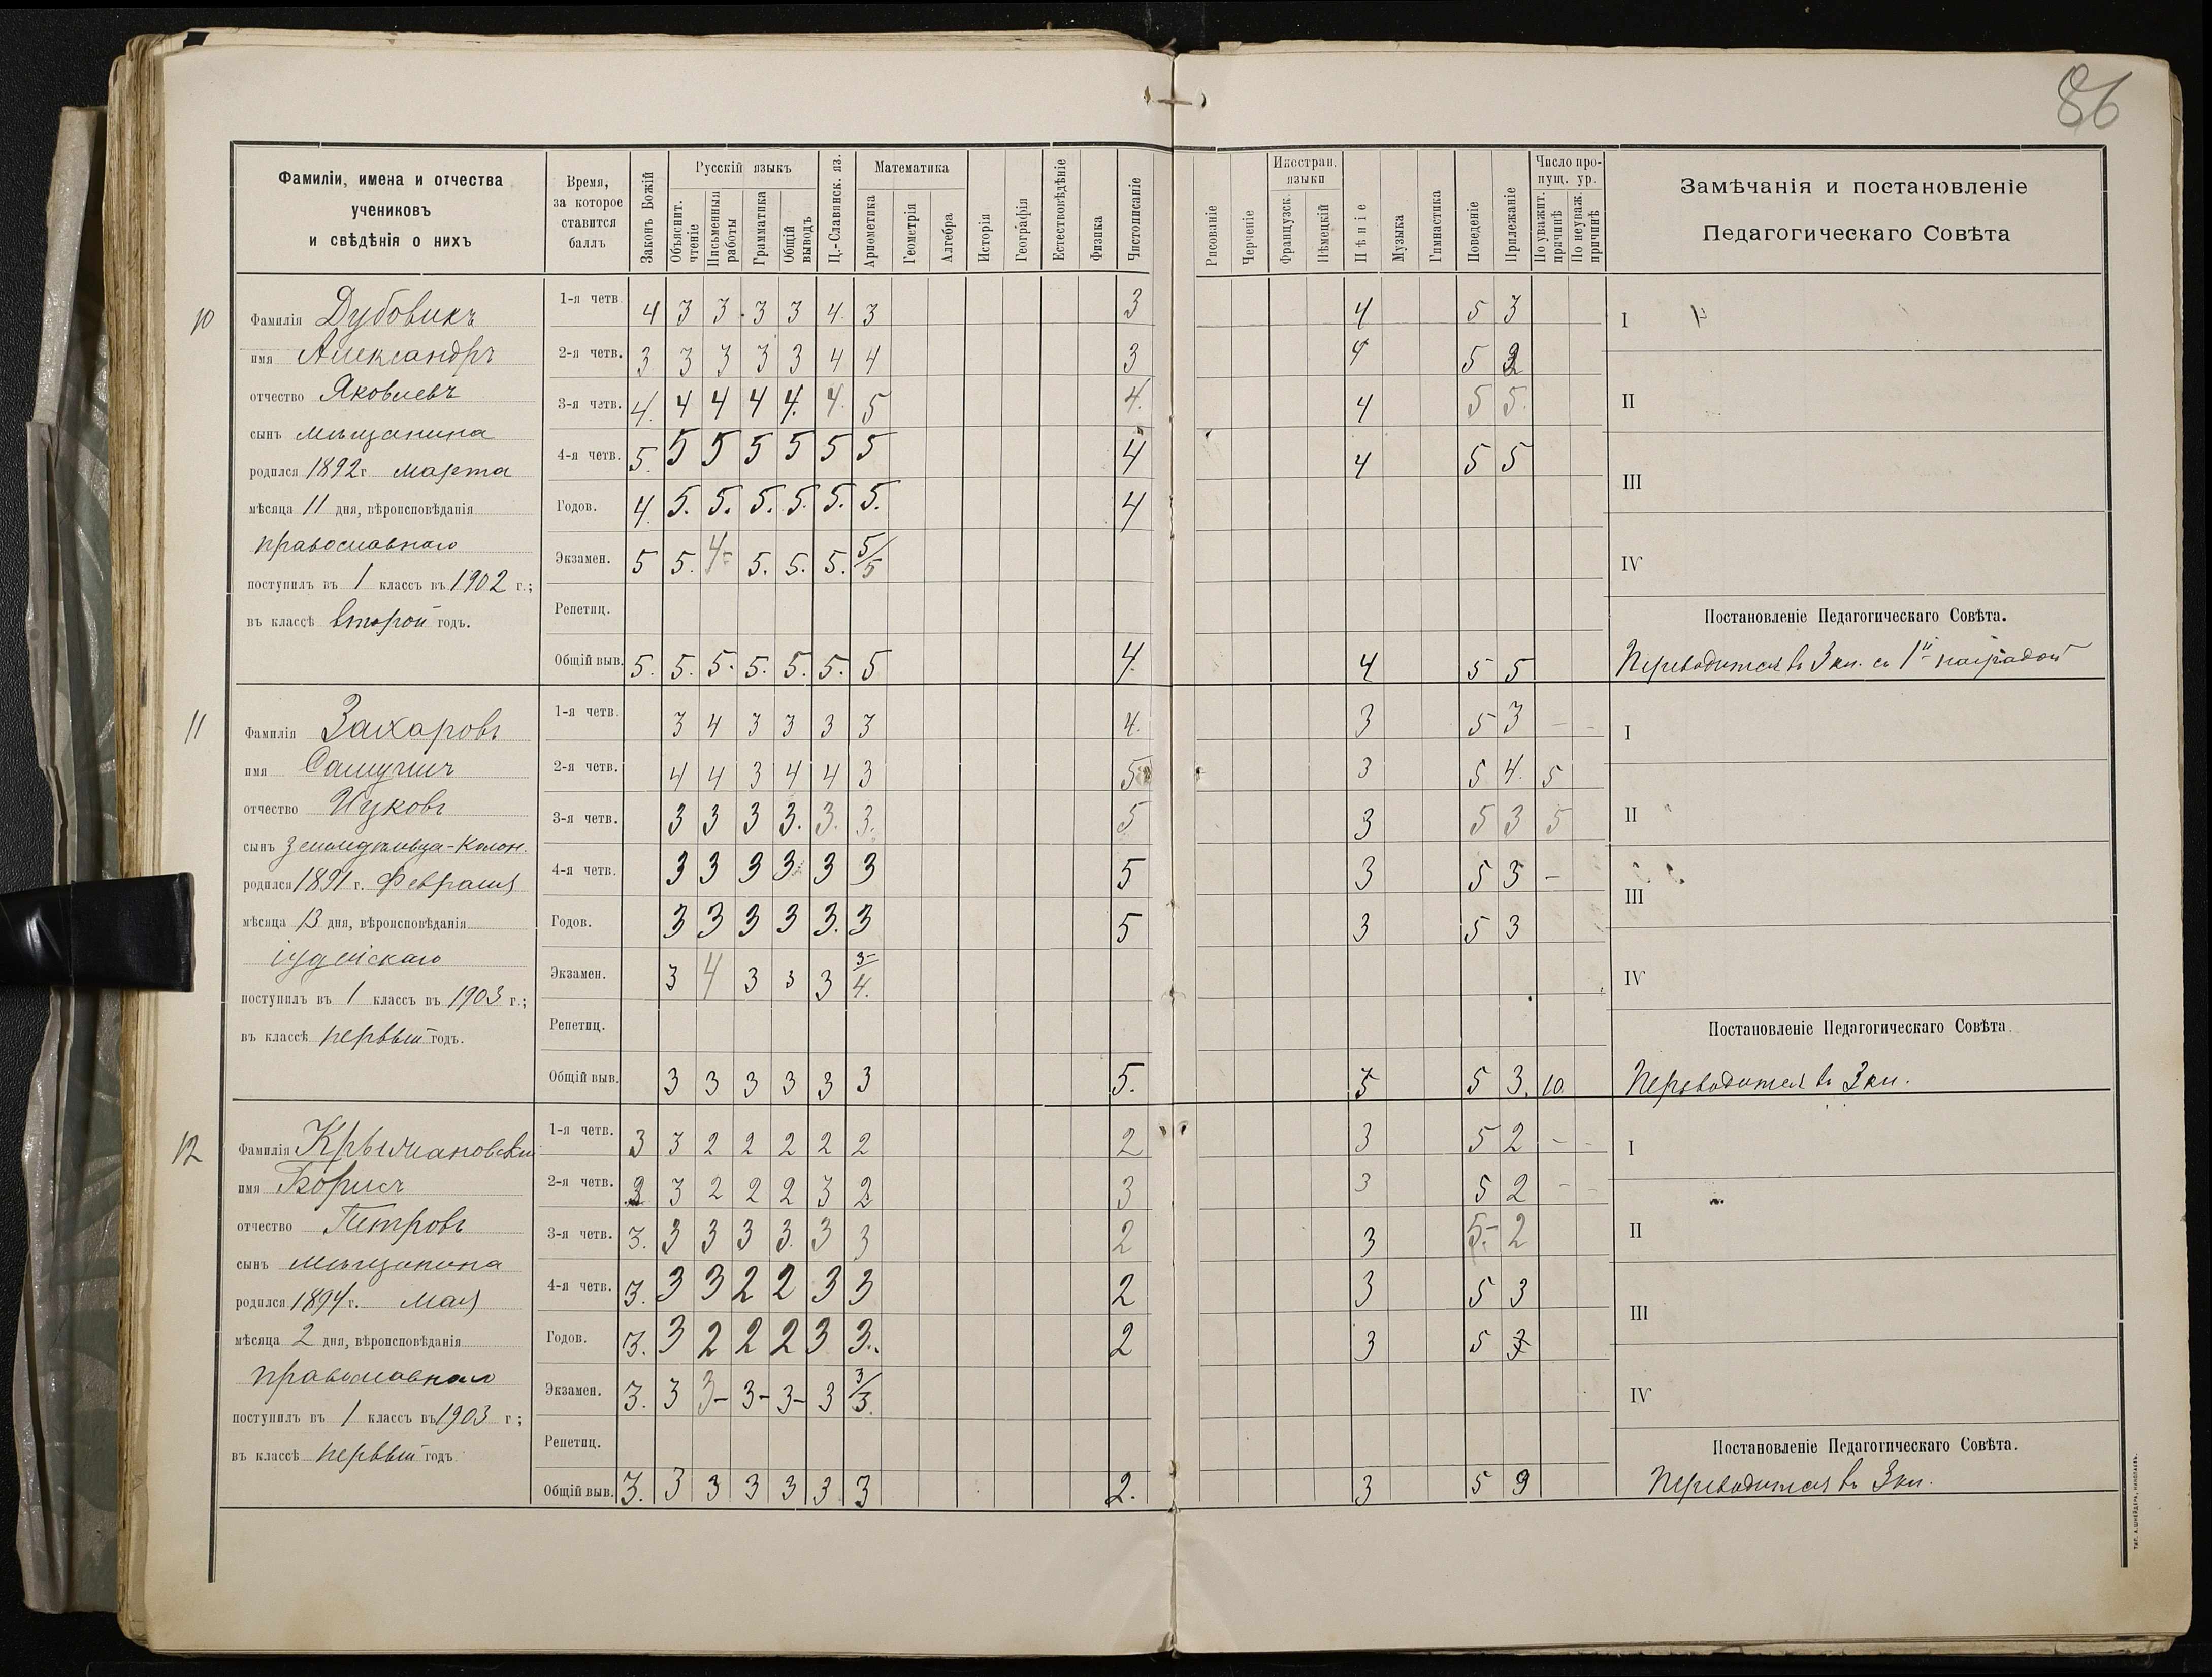 86
Фамиліи, имена и отчества
учениковъ
и свѣдѣнія о нихъ
Время,
за которое
ставится
баллъ
Законъ Божій
Русскій языкъ
Объяснит. чтеніе
Письменныя работы
Грамматика
Общій выводъ
Ц.-Славянск. яз.
Математика
Ариѳметика
Геометрія
Алгебра
Исторія
Географія
Естествовѣдѣніе
Физика
Чистописаніе
Рисованіе
Черченіе
Иностран. языки
Французск.
Нѣмецкій
Пѣніе
Музыка
Гимнастика
Поведеніе
Прилежаніе
Число пропущ. ур.
По уважит. причинѣ
По неуваж. причинѣ
Замѣчанія и постановленіе
Педагогическаго Совѣта
10
Фамилія Дубовикъ
имя Александръ
отчество Яковлевъ
сынъ мѣщанина
родился 1892 г. марта
мѣсяца 11 дня, вѣроисповѣданія
православнаго
поступилъ въ 1 классъ въ 1902 г.;
въ классѣ второй годъ.
1-я четв. 4 3 3 3 3 4 3 3 4 5 3
2-я четв. 3 3 3 3 3 4 4 3 4 5 2
3-я четв. 4. 4 4 4 4. 4. 5 4. 4 5 5
4-я четв. 5. 5 5 5 5 5 5 4 4 5 5
Годов. 4. 5. 5. 5. 5. 5. 5. 4
Экзамен. 5 5. 4- 5. 5. 5. 5/5
Репетиц.
Общій выв. 5. 5. 5. 5. 5. 5. 5 4. 4 5 5
I
II
III
IV
Постановленіе Педагогическаго Совѣта.
Переводится въ 3 кл. съ 1й наградой
11
Фамилія Захаровъ
имя Самуилъ
отчество Ицковъ
сынъ земледѣльца-колон.
родился 1891 г. Февраля
мѣсяца 13 дня, вѣроисповѣданія
іудейскаго
поступилъ въ 1 классъ въ 1903 г.;
въ классѣ первый годъ.
1-я четв. 3 4 3 3 3 3 4. 3 5 3 - -
2-я четв. 4 4 3 4 4 3 5 3 5 4. 5
3-я четв. 3 3 3 3. 3. 3. 5 3 5 3 5
4-я четв. 3 3 3 3 3 3 5 3 5 3 -
Годов. 3 3 3 3 3. 3 5 3 5 3
Экзамен. 3 4 3 3 3 3-/4.
Репетиц.
Общій выв. 3 3 3 3 3 3 5. 3 5 3. 10.
I
II
III
IV
Постановленіе Педагогическаго Совѣта.
Переводится въ 3 кл.
12
Фамилія Крыжановскій
имя Борисъ
отчество Петровъ
сынъ мѣщанина
родился 1894 г. Мая
мѣсяца 2 дня, вѣроисповѣданія
православнаго
поступилъ въ 1 классъ въ 1903 г.;
въ классѣ первый годъ.
1-я четв. 3 3 2 2 2 2 2 2 3 5 2 - -
2-я четв. 3 3 2 2 2 3 2 3 3 5 2 - -
3-я четв. 3. 3 3 3 3. 3 3 2 3 5- 2
4-я четв. 3. 3 3 2 2 3 3 2 3 5 3
Годов. 3. 3 2 2 2 3 3. 2 3 5 3
Экзамен. 3. 3 3- 3- 3- 3 3/3.
Репетиц.
Общій выв. 3. 3 3 3 3 3 3 2. 3 5 3
I
II
III
IV
Постановленіе Педагогическаго Совѣта.
Переводится въ 3 кл.
ТИП. А. ШНЕЙДЕРА, НИКОЛАЕВЪ.